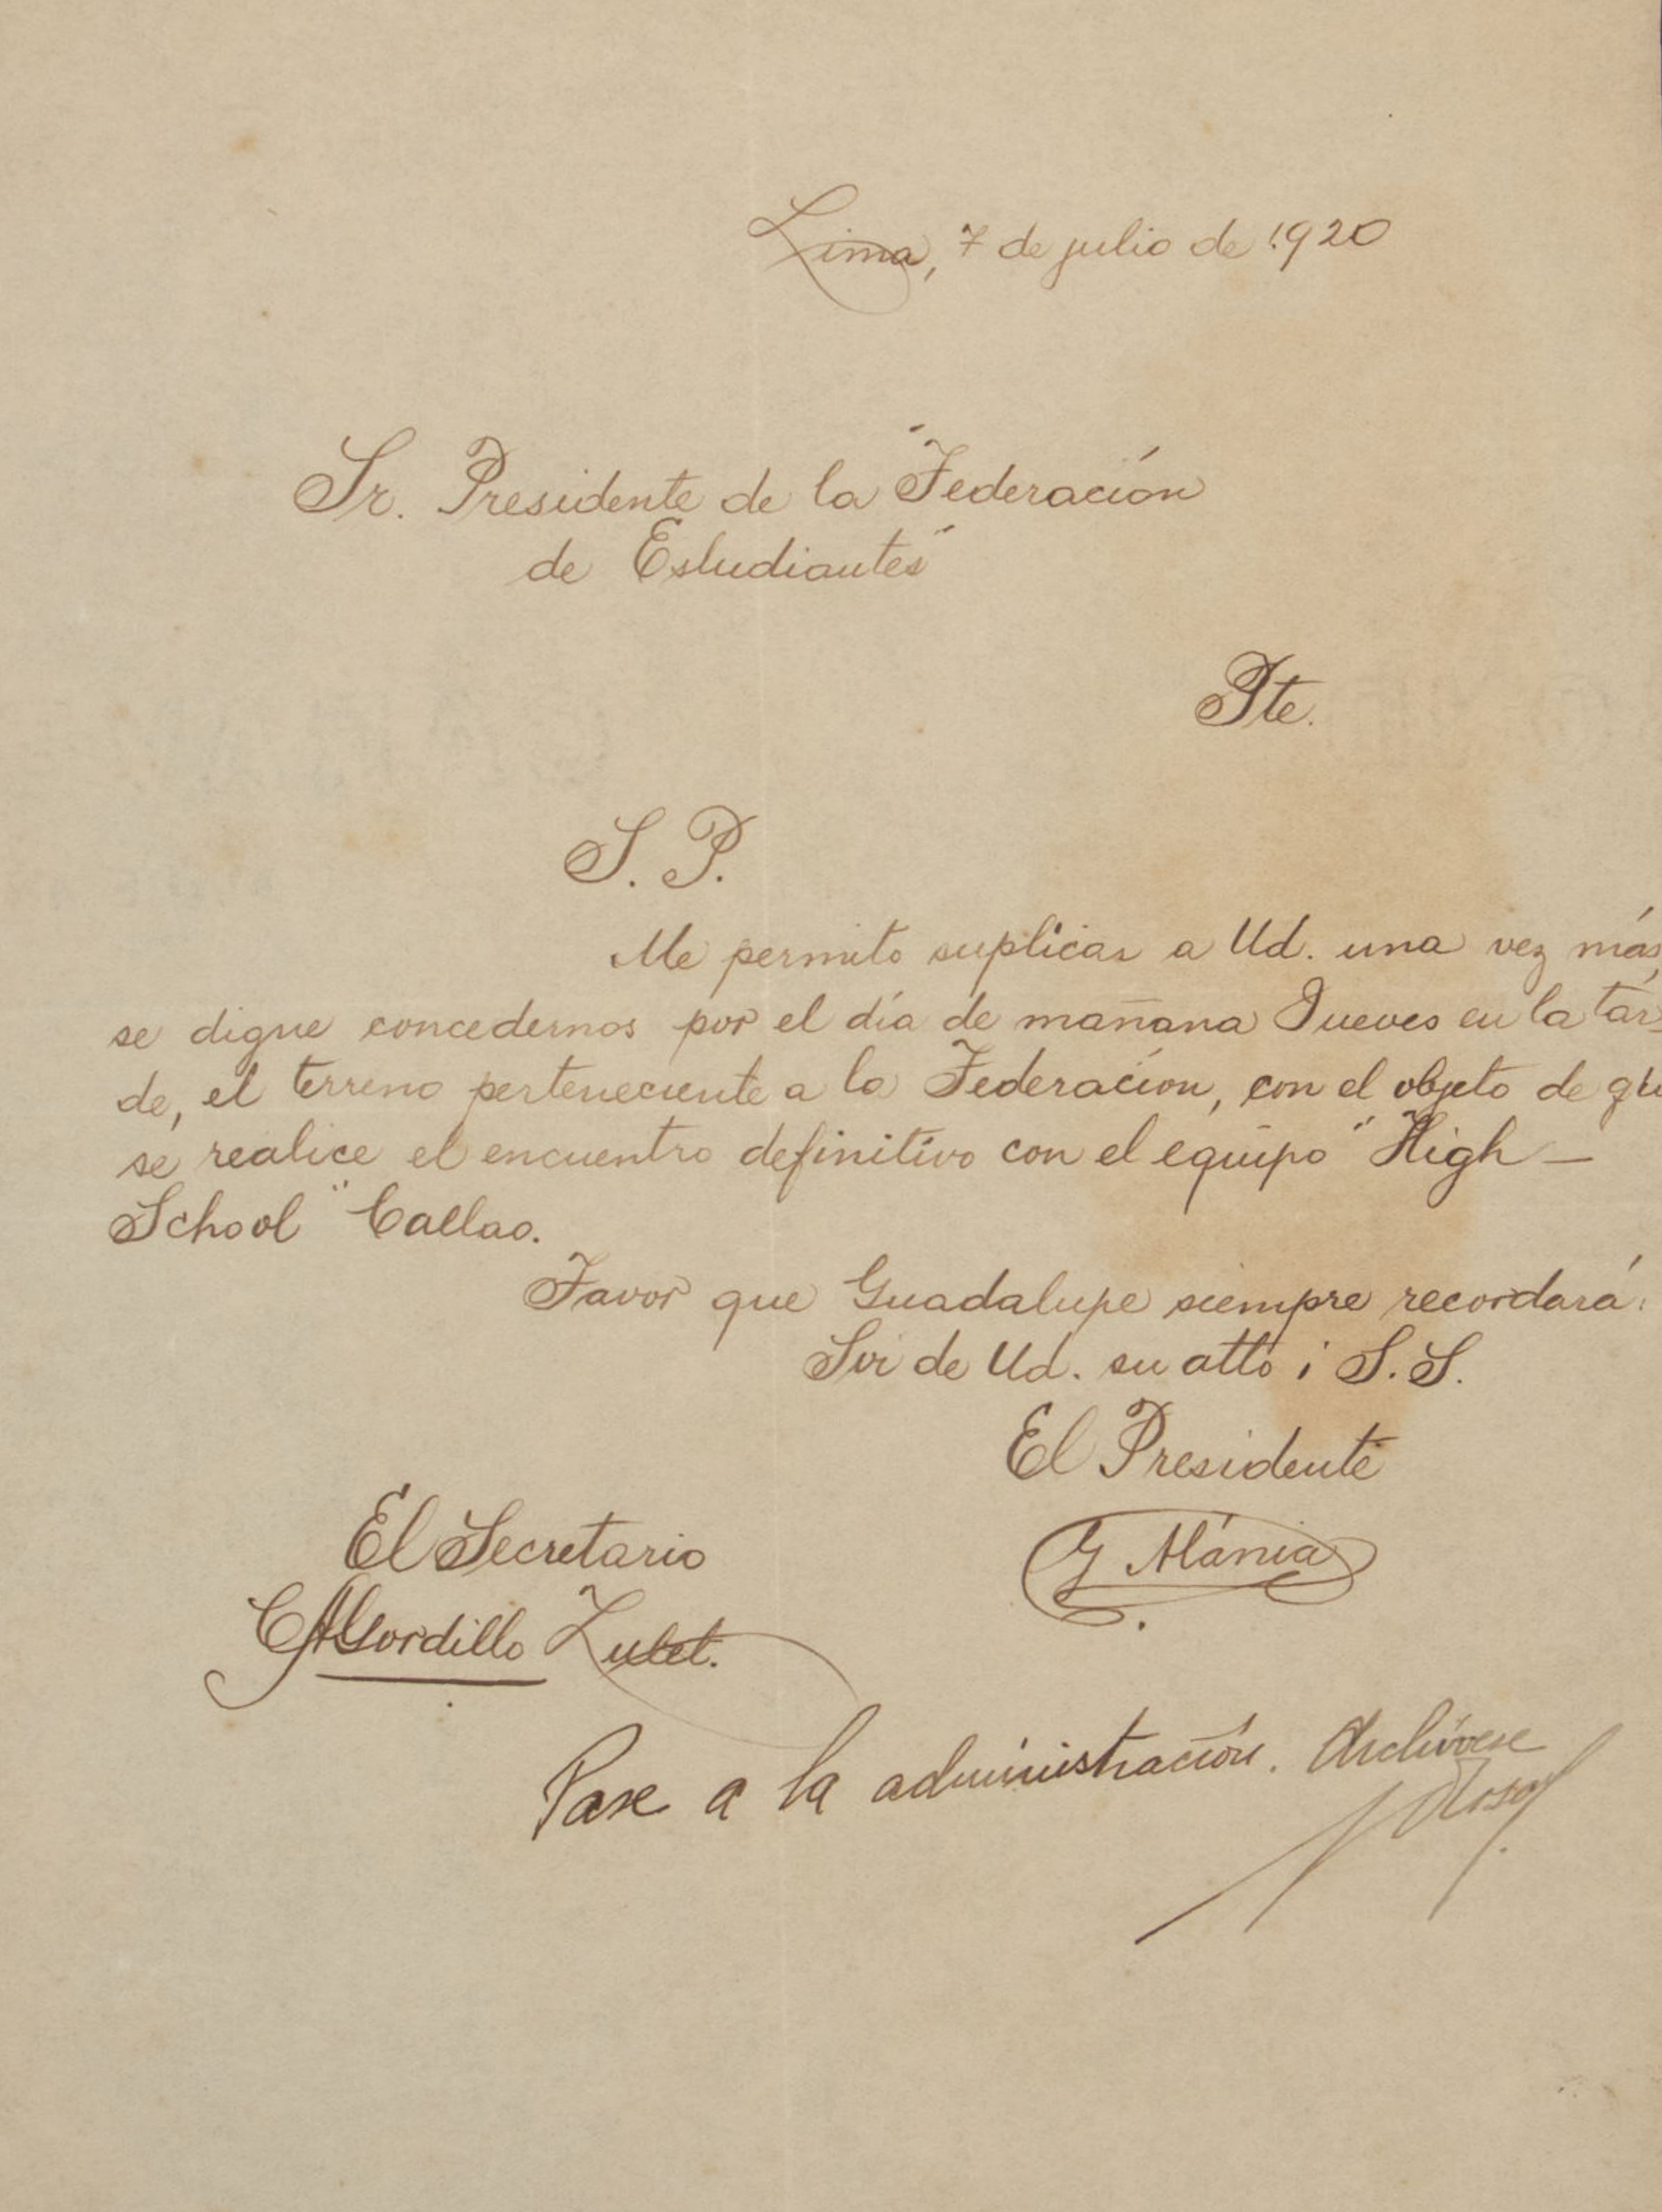 Lima, 7 de julio de 1920
Sr. Presidente de la "Federación
de Estudiantes"
Pte.
S. P.
Me permito suplicar a Ud. una vez más,
se digne concedernos por el día de mañana Jueves en la tar
de, el terreno perteneciente a la Federación, con el objeto de que
se realice el encuentro definitivo con el equipo "High –
School" Callao.
Favor que Guadalupe siempre recordará.
Soi de Ud. su atto i S. S.
El Presidente
El Secretario
G Alánia
Gordillo Zulet.
Pase a la administración. Archívese